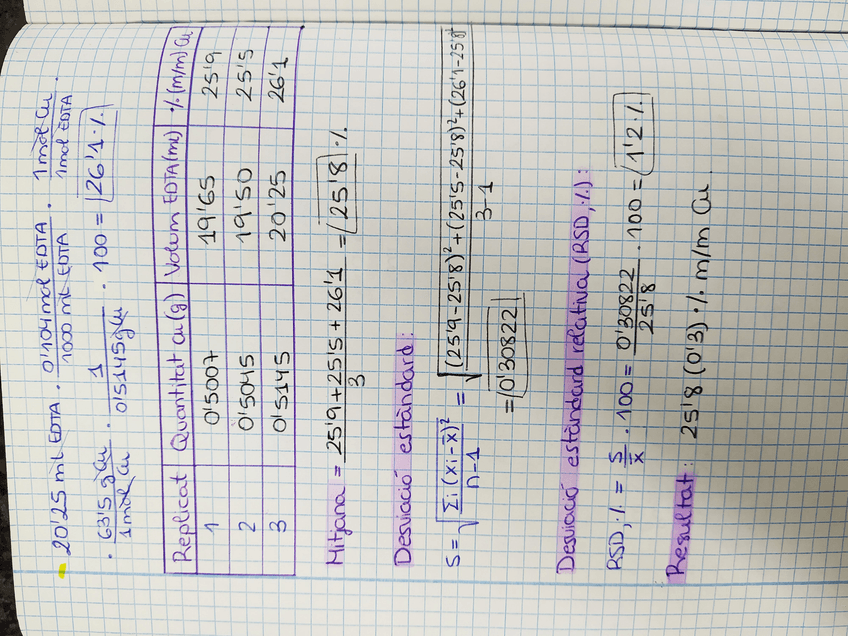 20'25 mL EDTA · 0'104 mol EDTA / 1000 mL EDTA · 1 mol Cu / 1 mol EDTA ·
· 63'5 g Cu / 1 mol Cu · 1 / 0'5145 g Cu · 100 = 26'1 %
Replicat Quantitat Cu (g) Volum EDTA (mL) % (m/m) Cu
1 0'5007 19'65 25'9
2 0'5045 19'50 25'5
3 0'5145 20'25 26'1
Mitjana = 25'9 + 25'5 + 26'1 / 3 = 25'8 %
Desviació estàndard:
S = √ Σi (xi - x̄)² / n-1 = √ (25'9 - 25'8)² + (25'5 - 25'8)² + (26'1 - 25'8)² / 3-1
= 0'30822
Desviació estàndard relativa (RSD, %):
RSD, % = S / x̄ · 100 = 0'30822 / 25'8 · 100 = 1'2 %
Resultat: 25'8 (0'3) % m/m Cu.